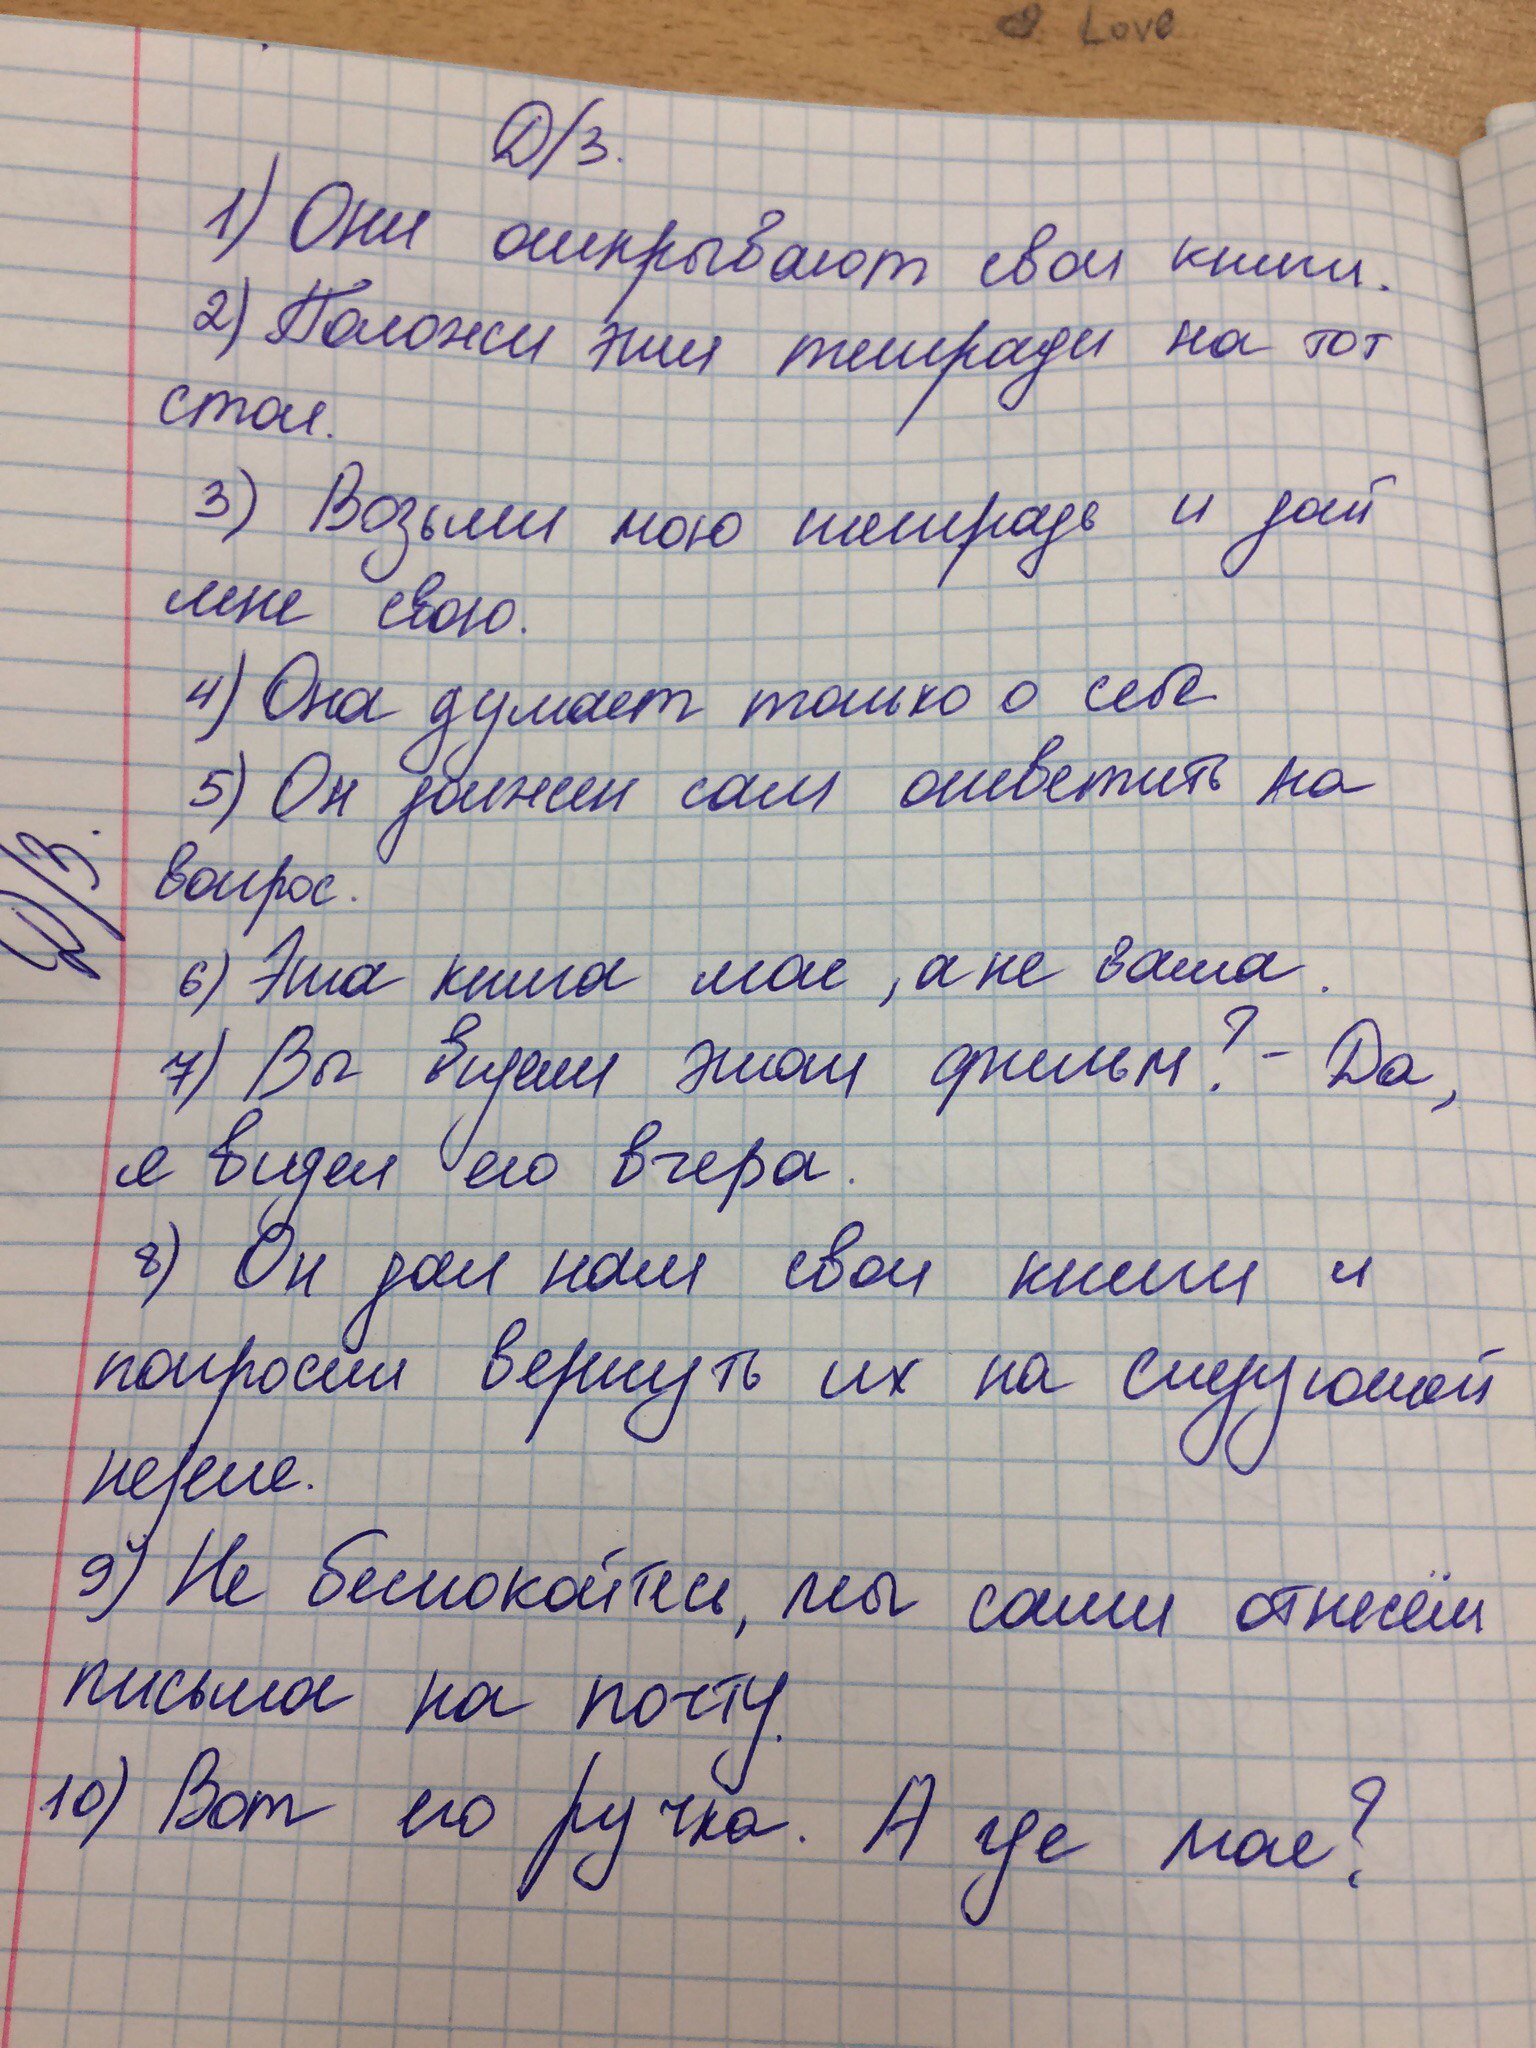 Love
Д/З.
1) Они открывают свои книги.
2) Положи эти тетради на тот
стол.
3) Возьми мою тетрадь и дай
мне свою.
4) Она думает только о себе
5) Он должен сам ответить на
вопрос.
Д/З.
6) Эта книга моя, а не ваша.
7) Вы видели этот фильм? - Да,
я видел его вчера.
8) Он дал нам свои книги и
попросил вернуть их на следующей
неделе.
9) Не беспокойтесь, мы сами отнесём
письма на почту.
10) Вот его ручка. А где моя?